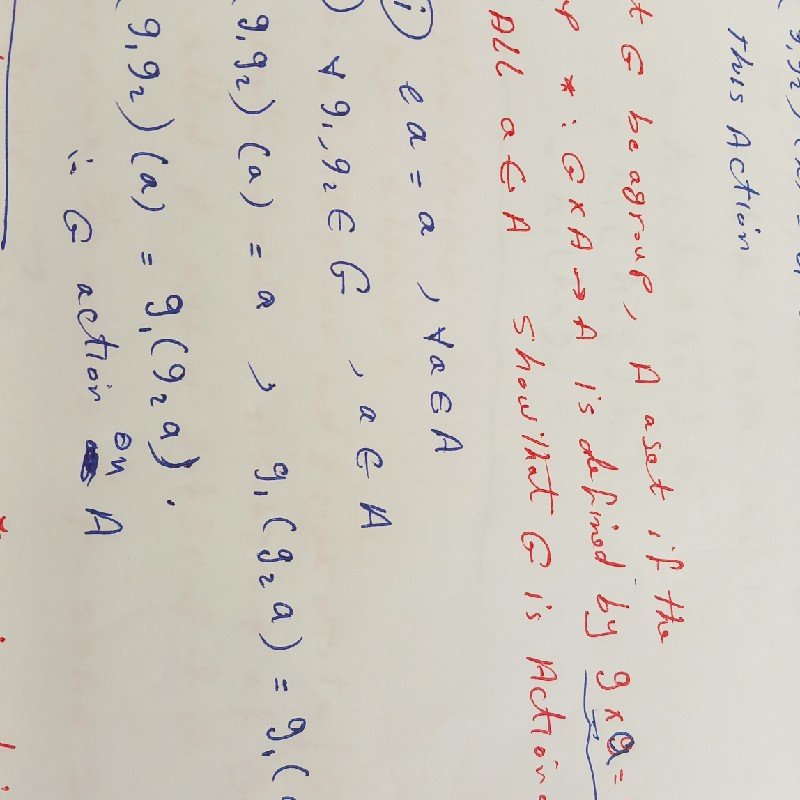 g, g₂) (
this Action
t G be agroup, A aset if the
P * : G × A → A is defined by g * a =
ALL a ∈ A show that G is Action
i) e a = a , ∀ a ∈ A
) ∀ g₁, g₂ ∈ G , a ∈ A
(g₁ g₂) (a) = a , g₁ (g₂ a) = g₁ (
(g₁ g₂) (a) = g₁ (g₂ a) .
∴ G action on A